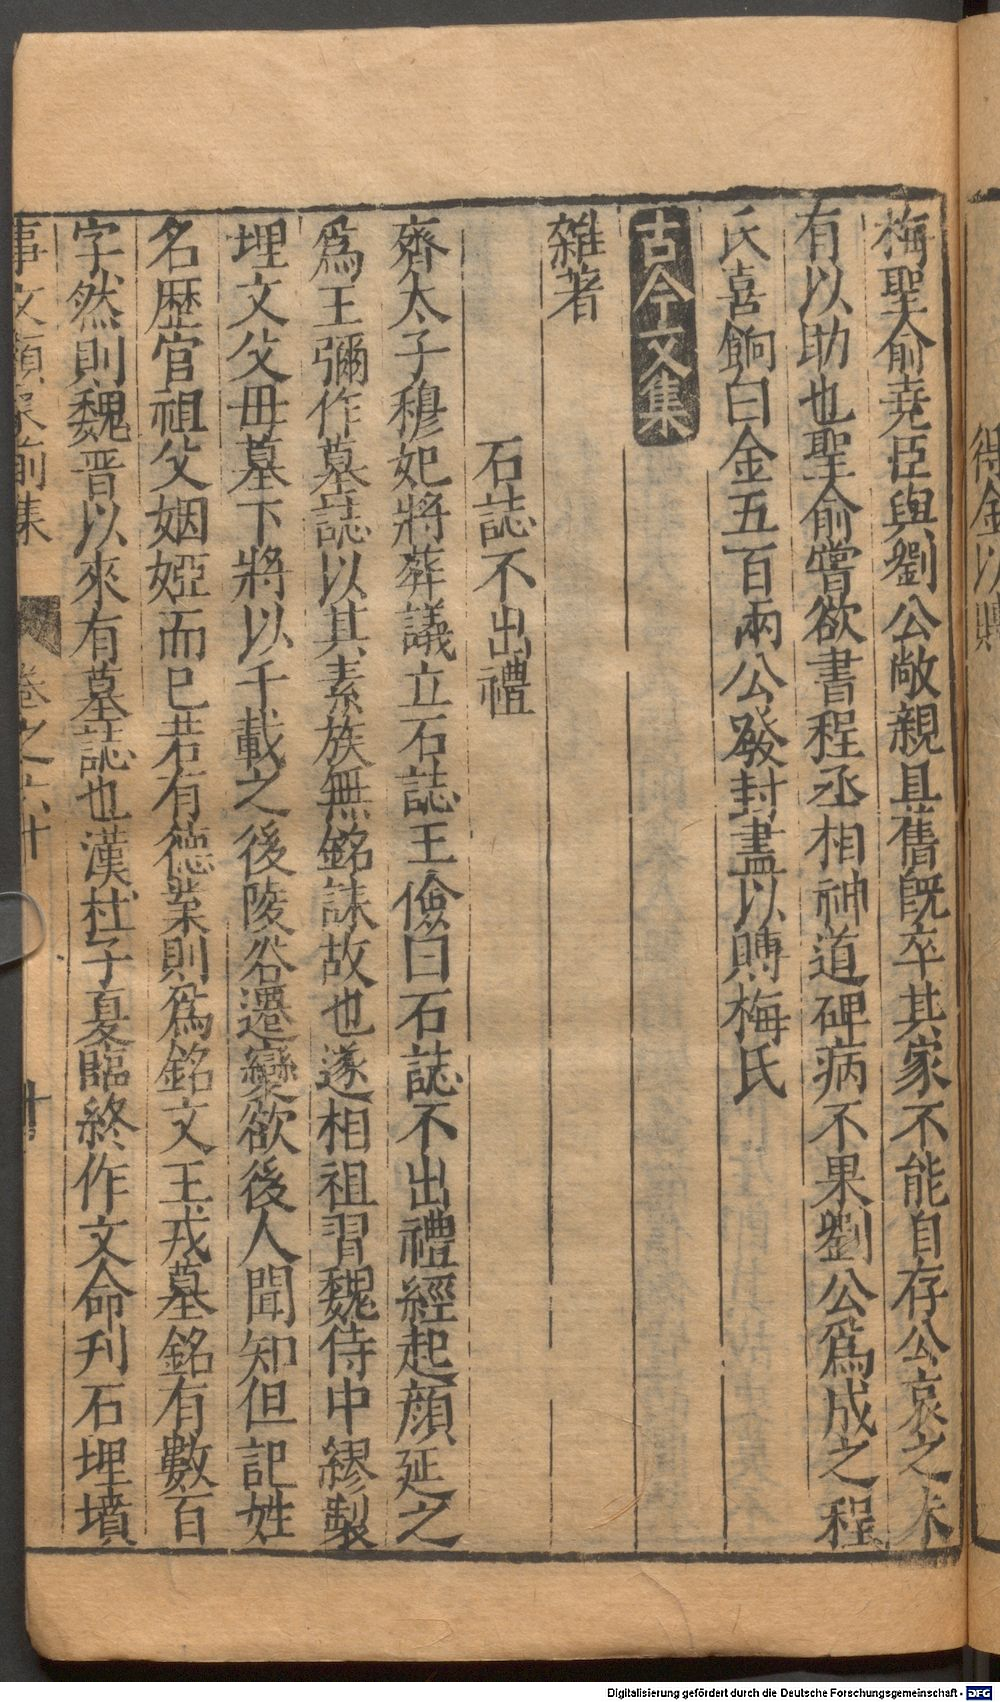 梅聖俞堯臣與劉公敞親且舊旣卒其家不能自存公哀之未
有以助也聖俞嘗欲書程丞相神道碑病不果劉公爲成之程
氏喜餉白金五百兩公發封盡以賻梅氏
古今文集
雜著
石誌不出禮
齊太子穆妃將葬議立石誌王儉曰石誌不出禮經起顔延之
爲王彌作墓誌以其素族無銘誄故也遂相祖習魏侍中繆製
埋文父母墓下將以千載之後陵谷遷變欲後人聞知但記姓
名歷官祖父姻婭而已若有德業則爲銘文王戎墓銘有數百
字然則魏晋以來有墓誌也漢杜子夏臨終作文命刋石埋墳
事文類聚前集 卷之六十
得金以賻
Digitalisierung gefördert durch die Deutsche Forschungsgemeinschaft - DFG